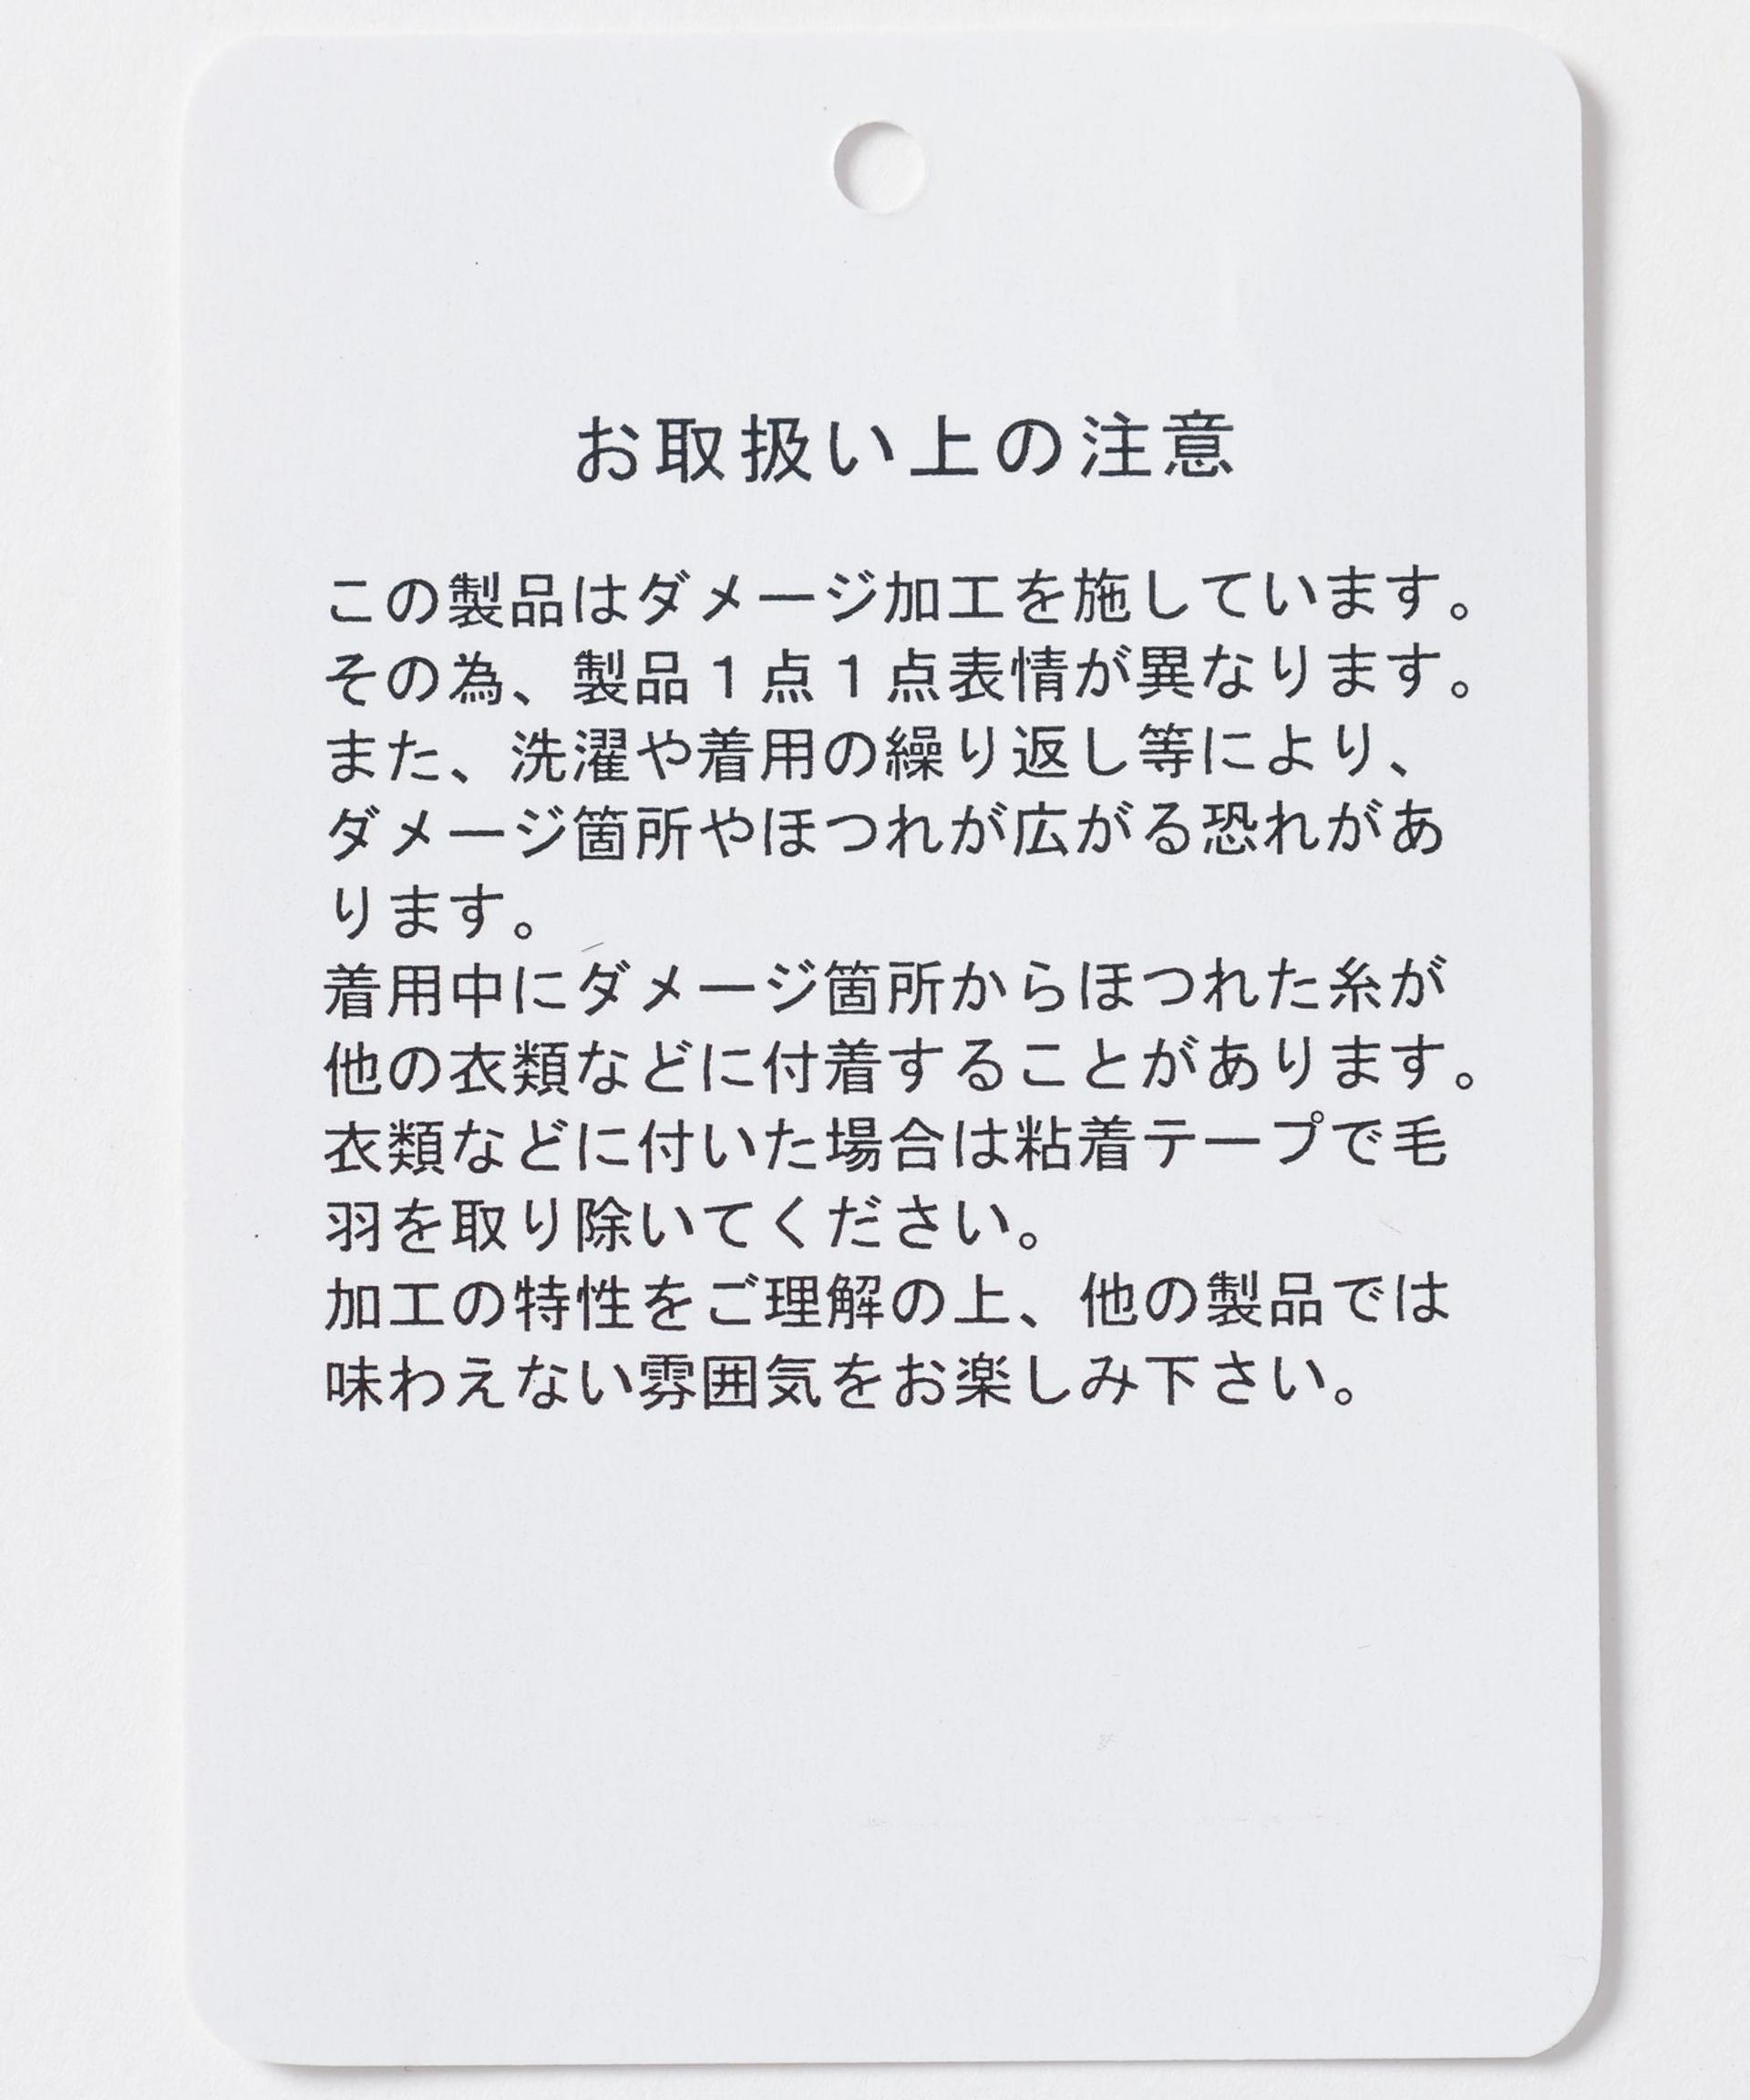 お取扱い上の注意
この製品はダメージ加工を施しています。
その為、製品１点１点表情が異なります。
また、洗濯や着用の繰り返し等により、
ダメージ箇所やほつれが広がる恐れがあ
ります。
着用中にダメージ箇所からほつれた糸が
他の衣類などに付着することがあります。
衣類などに付いた場合は粘着テープで毛
羽を取り除いてください。
加工の特性をご理解の上、他の製品では
味わえない雰囲気をお楽しみ下さい。